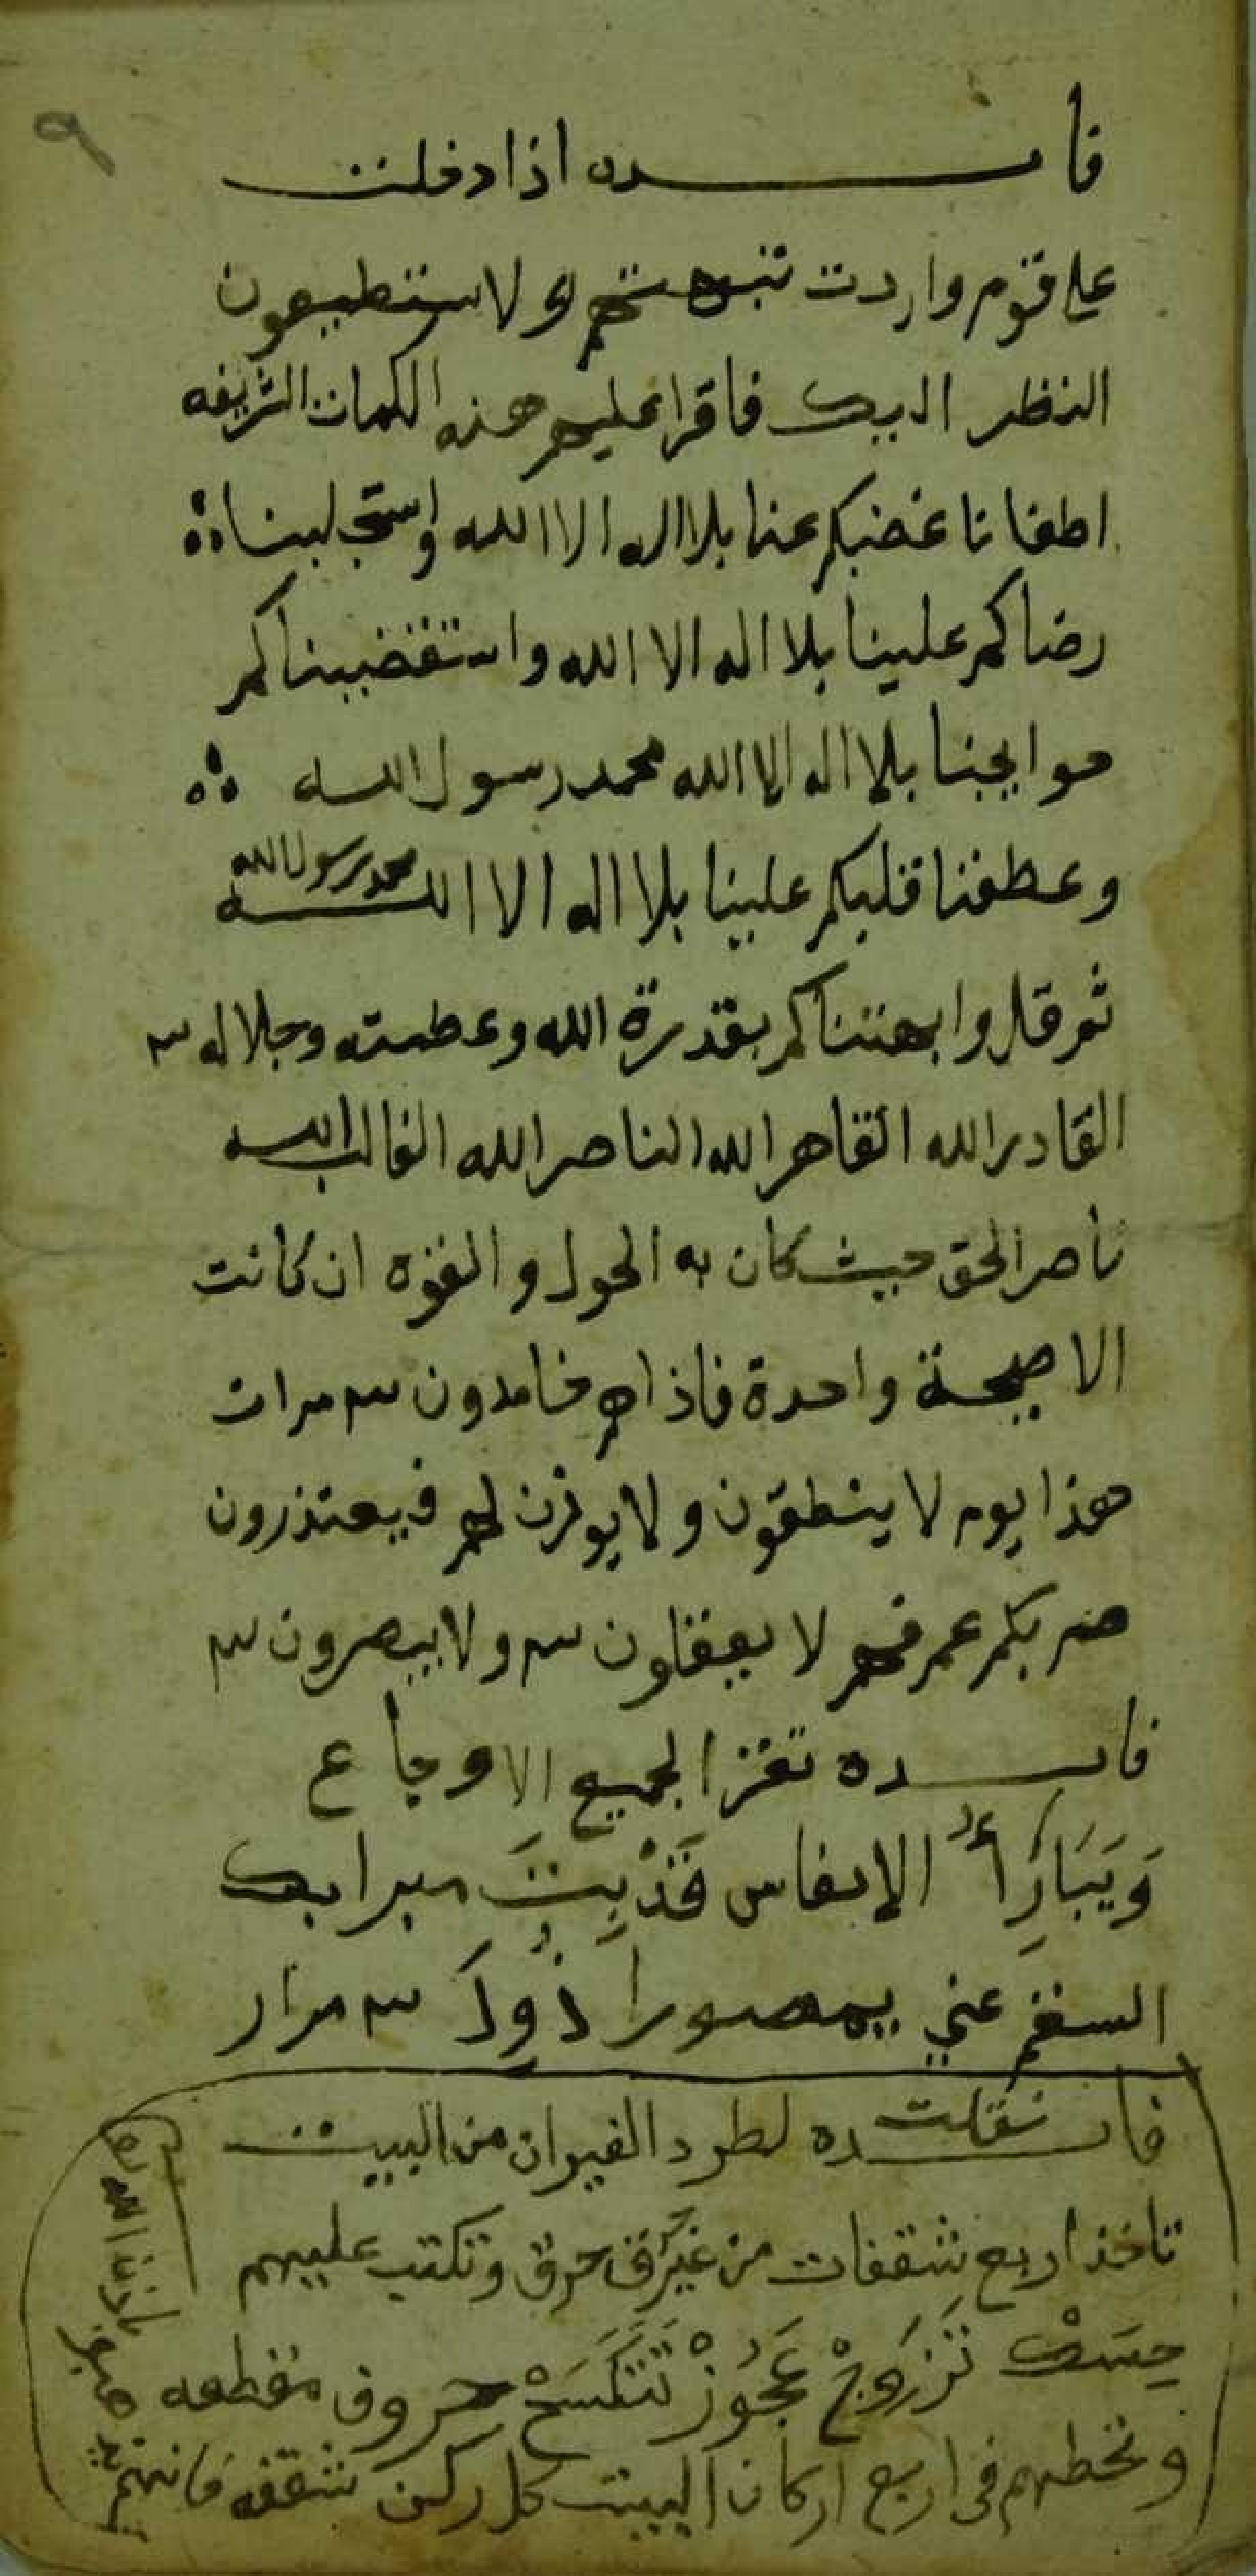 ٩
فايـــــده اذا دخلت
على قوم واردت تبهتهم ولا يستطيعون
النظر اليك فاقرا عليهم هذه الكمات الشريفه
اطفانا غضبكم عنا بلا اله الا الله واستجلبنا
رضاكم علينا بلا اله الا الله واستقضيناكم
حوايجنا بلا اله الا الله محمد رسول الله
وعطفنا قلبكم علينا بلا اله الا الله محمد رسول الله
ثم قل وابهتناكم بقدرة الله وعظمته وجلاله ٣
القادر الله القاهر الله الناصر الله الغالب الله
ناصر الحق حيث كان به الحول والقوه ان كانت
الا صيحة واحدة فاذا هم خامدون ٣ مرات
هذا يوم لا ينطقون ولا يوذن لهم فيعتذرون
صم بكم عمي فهم لا يعقلون ٣ ولا يبصرون ٣
فايـــده تقرا لجميع الاوجاع
السقم عني ٣ مرار
فايـــده نقلت لطرد الفيران من البيت
تاخذ اربع شقفات من غير حرق وتكتب عليهم
تزوج عجوز حروف مقطعه
وتحطهم في اربع اركان البيت كل ركن شقفه فانهم
باذن الله